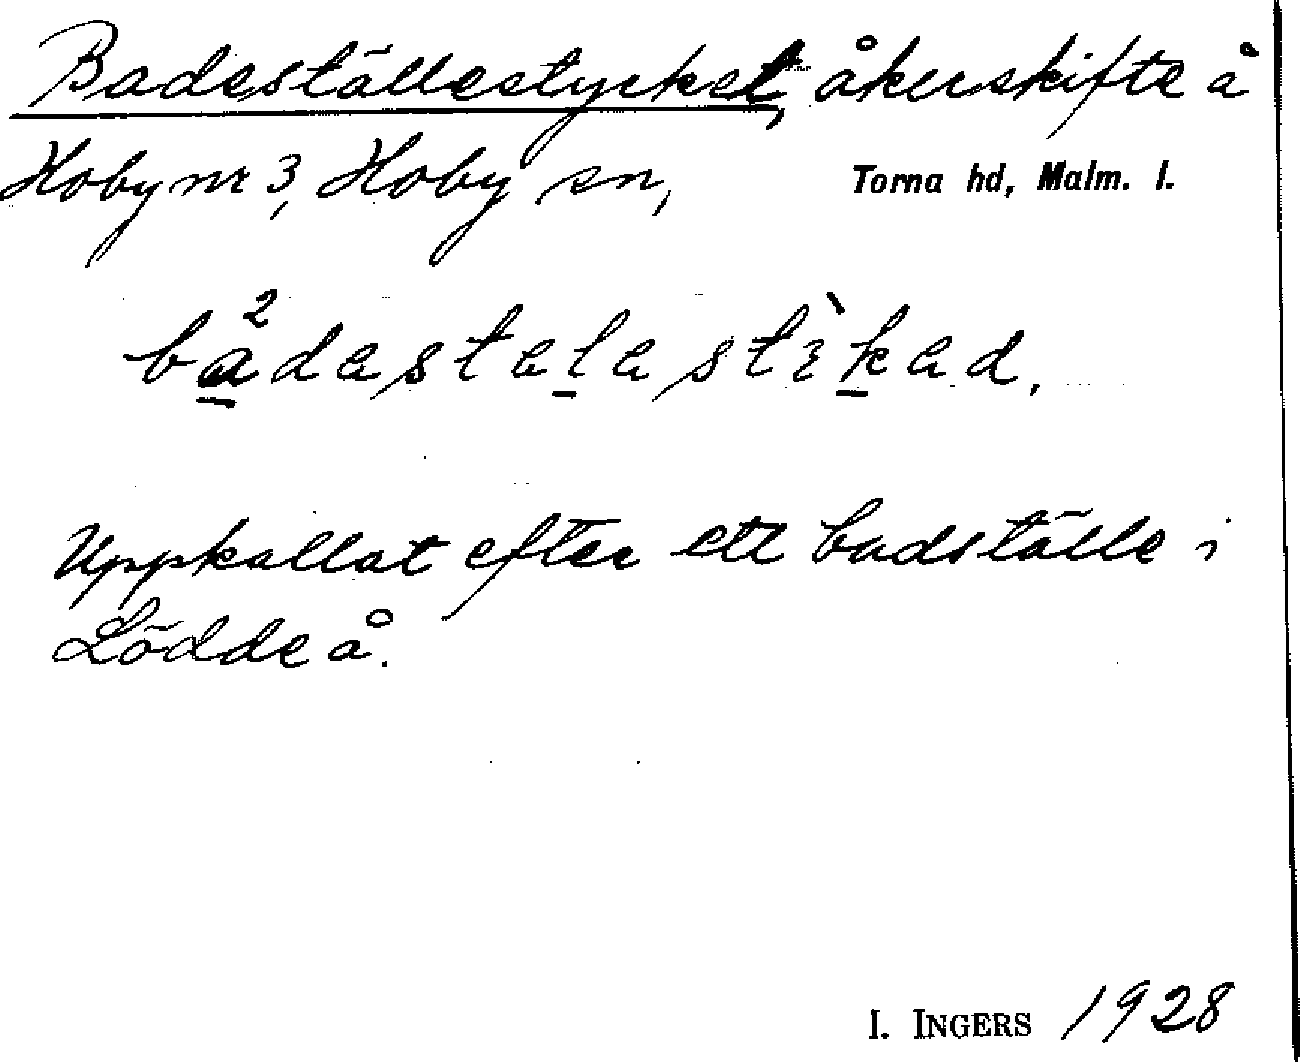 Badeställestycket, åkerskifte å
Hoby nr 3, Hoby sn, Torna hd, Malm. l.
Uppkallat efter ett badställe i
Lödde å.
I. INGERS 1928